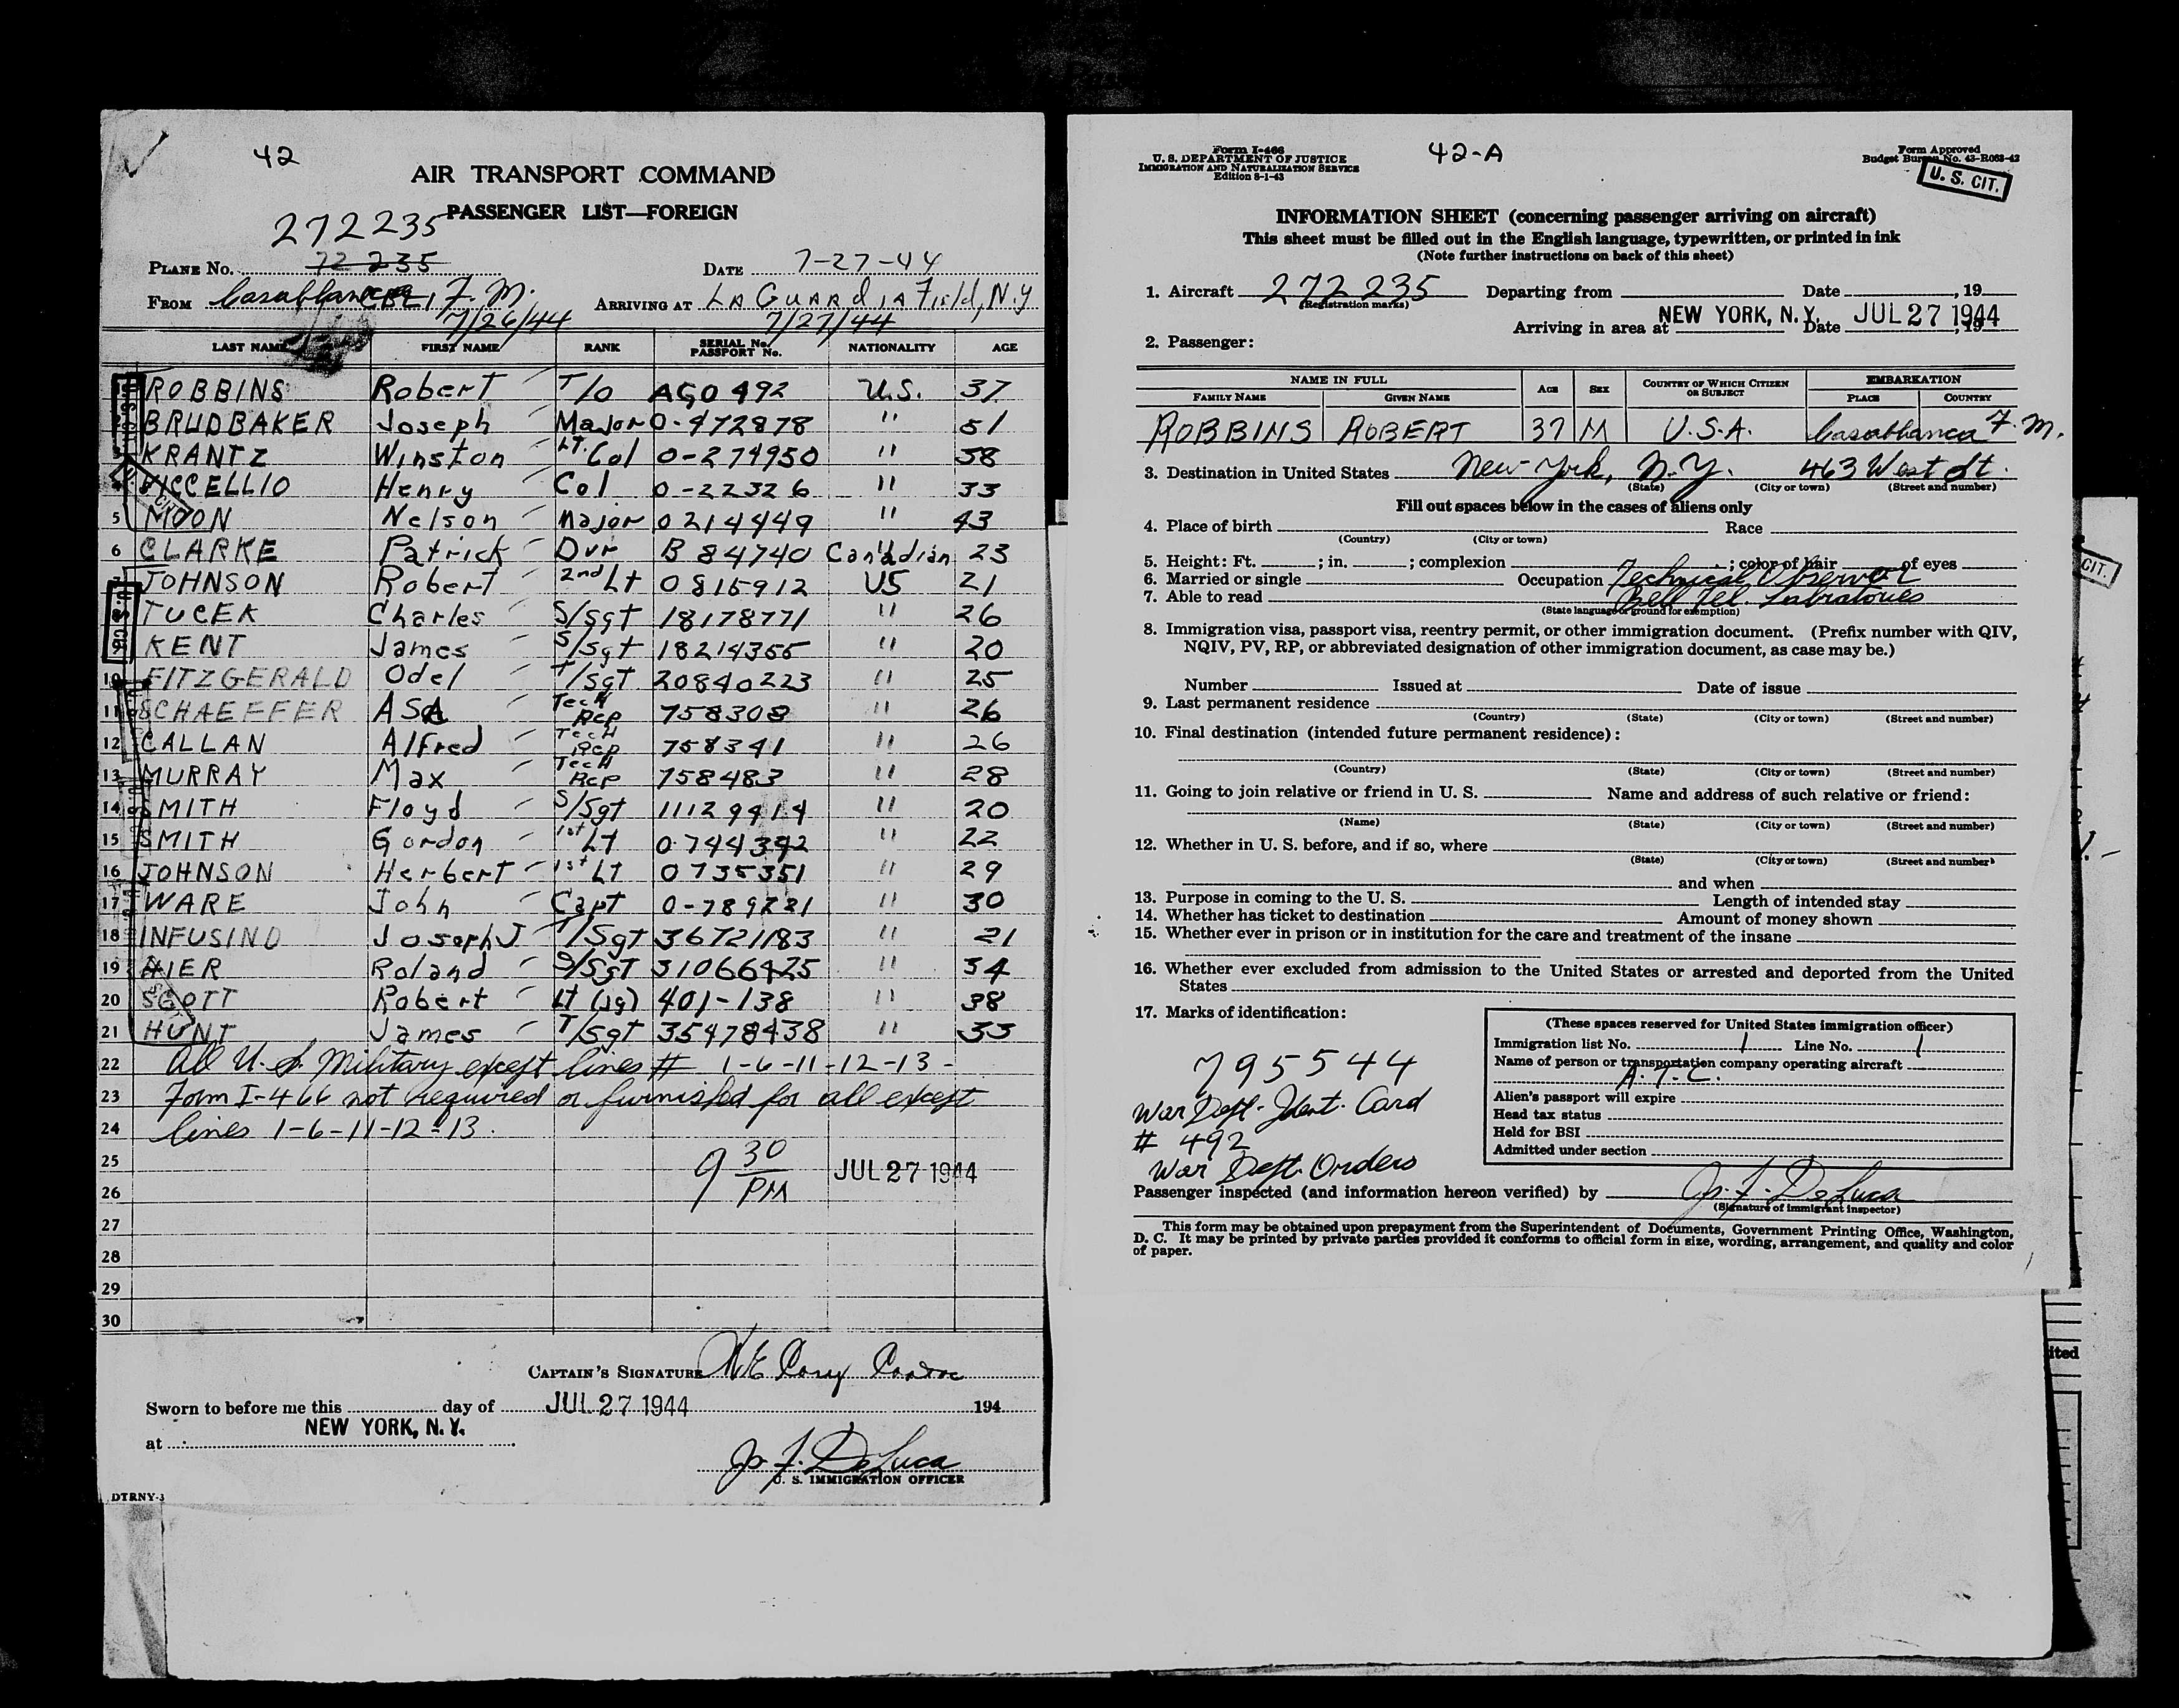 42
AIR TRANSPORT COMMAND
PASSENGER LIST—FOREIGN
272235
PLANE No. 72 235 DATE 7-27-44
FROM Casablanca F.M. ARRIVING AT LA GUARdiA Field, N.Y
7/26/44 7/27/44
LAST NAME FIRST NAME RANK SERIAL No. PASSPORT No. NATIONALITY AGE
ROBBINS Robert T/O AGO 492 U.S. 37
BRUDBAKER Joseph Major O-472878 " 51
3 KRANTZ Winston LT. Col O-274950 " 38
VICCELLIO Henry Col O-22326 " 33
5 MOON Nelson Major 0214449 " 43
6 CLARKE Patrick Dvr B 84740 Canadian 23
7 JOHNSON Robert 2nd Lt 0815912 US 21
8 TUCEK Charles S/Sgt 18178771 " 26
9 KENT James S/Sgt 18214355 " 20
10 FITZGERALD Odel T/SgT 20840223 " 25
11 SCHAEFFER ASA TecH Rep 758308 " 26
12 CALLAN Alfred TecH Rep 758341 " 26
13 MURRAY Max TecH Rep 758483 " 28
14 SMITH Floyd S/Sgt 11129414 " 20
15 SMITH Gordon 1st LT 0744392 " 22
16 JOHNSON Herbert 1st LT 0735351 " 29
17 WARE John Capt O-789221 " 30
18 INFUSINO Joseph J T/Sgt 36721183 " 21
19 HIER Roland S/SgT 31066425 " 34
20 SCOTT Robert LT (jg) 401-138 " 38
21 HUNT James T/Sgt 35478438 " 33
22 All U.S. Military except lines # 1-6-11-12-13-
23 Form I-466 not required or furnished for all except
24 lines 1-6-11-12-13.
25 9 30 PM JUL 27 1944
26
27
28
29
30
CAPTAIN'S SIGNATURE
Sworn to before me this day of JUL 27 1944 194
at NEW YORK, N.Y.
J. F. DeLuca
U. S. IMMIGRATION OFFICER
DTRNY-3
Form I-466
U. S. DEPARTMENT OF JUSTICE
IMMIGRATION AND NATURALIZATION SERVICE
Edition 8-1-43
42-A
Form Approved
Budget Bureau No. 43-R063-42
U. S. CIT.
INFORMATION SHEET (concerning passenger arriving on aircraft)
This sheet must be filled out in the English language, typewritten, or printed in ink
(Note further instructions on back of this sheet)
1. Aircraft 272 235 Departing from Date , 19
(Registration marks)
Arriving in area at NEW YORK, N.Y. Date JUL 27 1944 , 19
2. Passenger:
NAME IN FULL AGE SEX COUNTRY OF WHICH CITIZEN OR SUBJECT EMBARKATION
FAMILY NAME GIVEN NAME PLACE COUNTRY
ROBBINS ROBERT 37 M U.S.A. Casablanca F.M.
3. Destination in United States New York, N.Y. 463 West St.
(State) (City or town) (Street and number)
Fill out spaces below in the cases of aliens only
4. Place of birth Race
(Country) (City or town)
5. Height: Ft. ; in. ; complexion ; color of hair of eyes
6. Married or single Occupation Technical Observer
7. Able to read Bell Tel. Labratories
(State language or ground for exemption)
8. Immigration visa, passport visa, reentry permit, or other immigration document. (Prefix number with QIV,
NQIV, PV, RP, or abbreviated designation of other immigration document, as case may be.)
Number Issued at Date of issue
9. Last permanent residence
(Country) (State) (City or town) (Street and number)
10. Final destination (intended future permanent residence):
(Country) (State) (City or town) (Street and number)
11. Going to join relative or friend in U. S. Name and address of such relative or friend:
(Name) (State) (City or town) (Street and number)
12. Whether in U. S. before, and if so, where
(State) (City or town) (Street and number)
and when
13. Purpose in coming to the U. S. Length of intended stay
14. Whether has ticket to destination Amount of money shown
15. Whether ever in prison or in institution for the care and treatment of the insane
16. Whether ever excluded from admission to the United States or arrested and deported from the United
States
17. Marks of identification:
795544
War Dept. Ident. Card
# 492
War Dept. Orders
(These spaces reserved for United States immigration officer)
Immigration list No. 1 Line No. 1
Name of person or transportation company operating aircraft
A.T.C.
Alien's passport will expire
Head tax status
Held for BSI
Admitted under section
Passenger inspected (and information hereon verified) by J. F. DeLuca
(Signature of immigrant inspector)
This form may be obtained upon prepayment from the Superintendent of Documents, Government Printing Office, Washington,
D. C. It may be printed by private parties provided it conforms to official form in size, wording, arrangement, and quality and color
of paper.
CIT.
ited